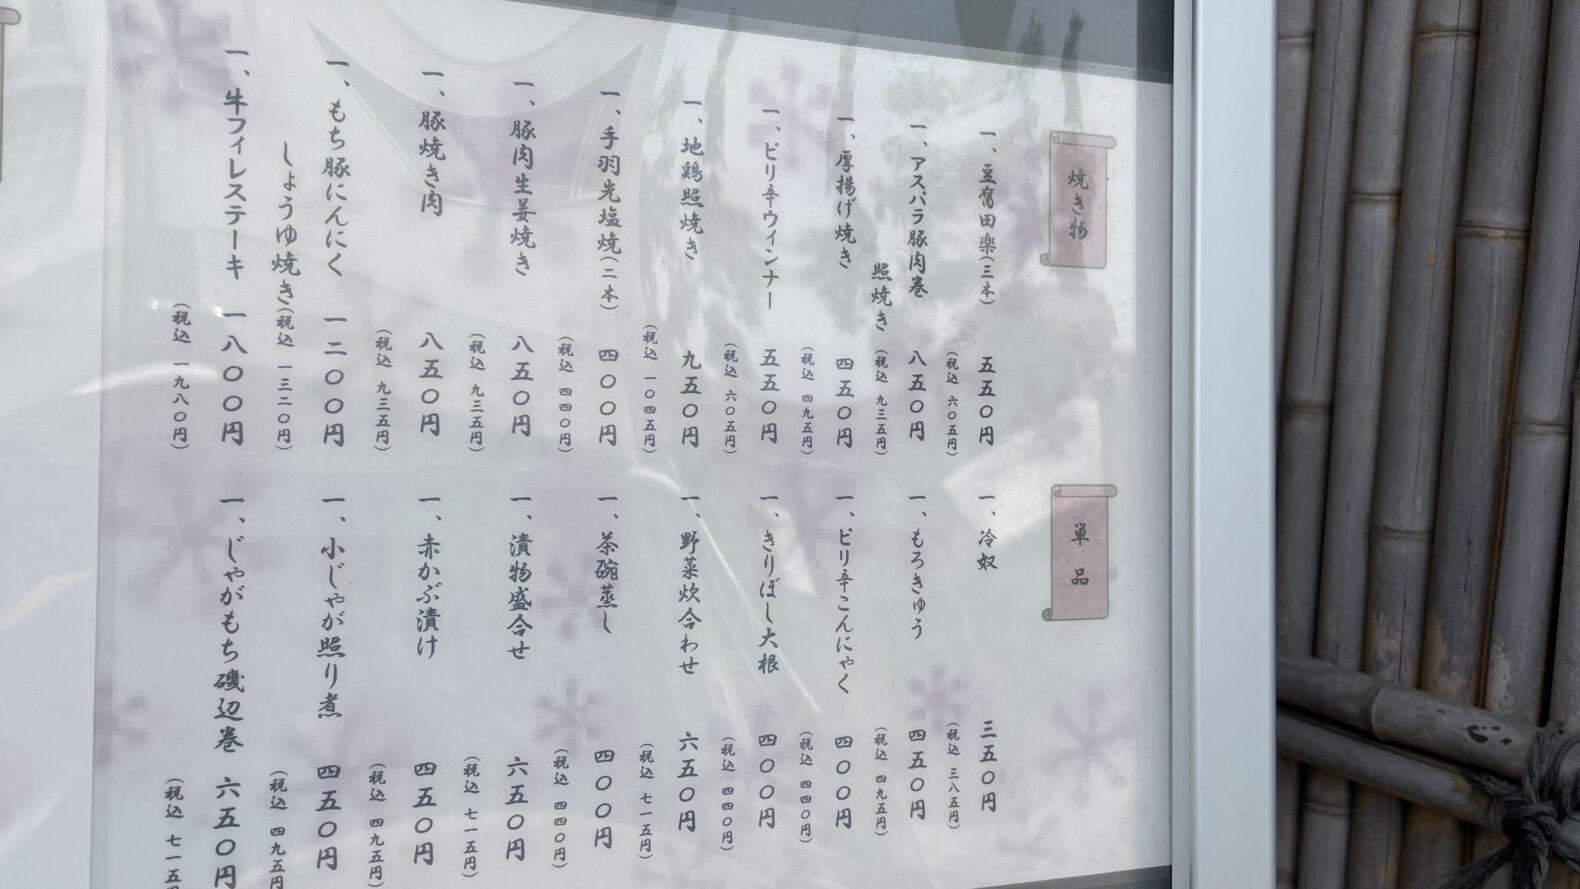 焼き物
一、豆腐田楽(三本) 五五〇円
(税込 六〇五円)
一、アスパラ豚肉巻
照焼き 八五〇円
(税込 九三五円)
一、厚揚げ焼き 四五〇円
(税込 四九五円)
一、ピリ辛ウィンナー 五五〇円
(税込 六〇五円)
一、地鶏照焼き 九五〇円
(税込 一〇四五円)
一、手羽先塩焼(二本) 四〇〇円
(税込 四四〇円)
一、豚肉生姜焼き 八五〇円
(税込 九三五円)
一、豚焼き肉 八五〇円
(税込 九三五円)
一、もち豚にんにく
しょうゆ焼き 一二〇〇円
(税込 一三二〇円)
一、牛フィレステーキ 一八〇〇円
(税込 一九八〇円)
単品
一、冷奴 三五〇円
(税込 三八五円)
一、もろきゅう 四五〇円
(税込 四九五円)
一、ピリ辛こんにゃく 四〇〇円
(税込 四四〇円)
一、きりぼし大根 四〇〇円
(税込 四四〇円)
一、野菜炊合わせ 六五〇円
(税込 七一五円)
一、茶碗蒸し 四〇〇円
(税込 四四〇円)
一、漬物盛合せ 六五〇円
(税込 七一五円)
一、赤かぶ漬け 四五〇円
(税込 四九五円)
一、小じゃが照り煮 四五〇円
(税込 四九五円)
一、じゃがもち磯辺巻 六五〇円
(税込 七一五円